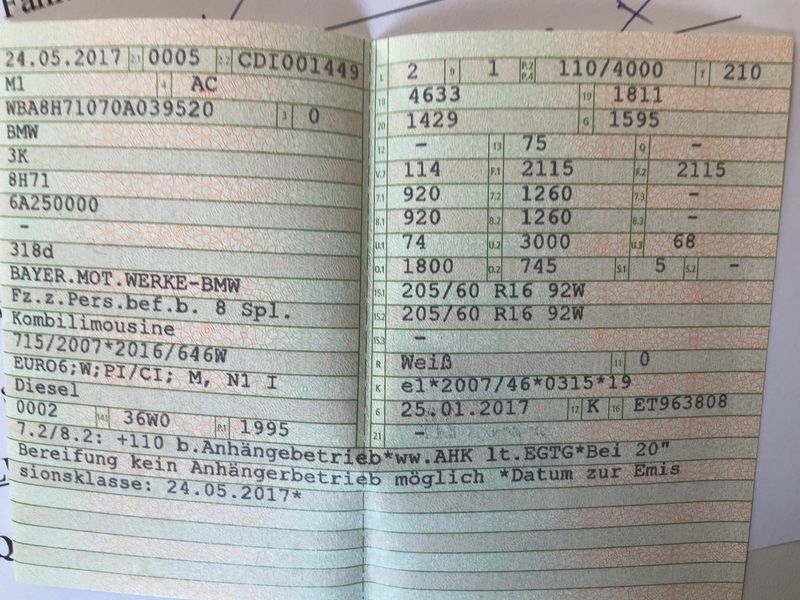 24.05.2017 2.1 0005 2.2 CDI001449
M1 4 AC
WBA8H71070A039520 3 0
BMW
3K
8H71
6A250000
–
318d
BAYER.MOT.WERKE-BMW
Fz.z.Pers.bef.b. 8 Spl.
Kombilimousine
715/2007*2016/646W
EURO6;W;PI/CI; M, N1 I
Diesel
0002 14.1 36W0 P.1 1995
L 2 9 1 P.2 P.4 110/4000 T 210
18 4633 19 1811
20 1429 G 1595
12 – 13 75 Q –
V.7 114 F.1 2115 F.2 2115
7.1 920 7.2 1260 7.3 –
8.1 920 8.2 1260 8.3 –
U.1 74 U.2 3000 U.3 68
O.1 1800 O.2 745 S.1 5 S.2 –
15.1 205/60 R16 92W
15.2 205/60 R16 92W
15.3 –
R Weiß 11 0
K e1*2007/46*0315*19
6 25.01.2017 17 K 16 ET963808
21 –
7.2/8.2: +110 b.Anhängebetrieb*ww.AHK lt.EGTG*Bei 20"
Bereifung kein Anhängerbetrieb möglich *Datum zur Emis
sionsklasse: 24.05.2017*